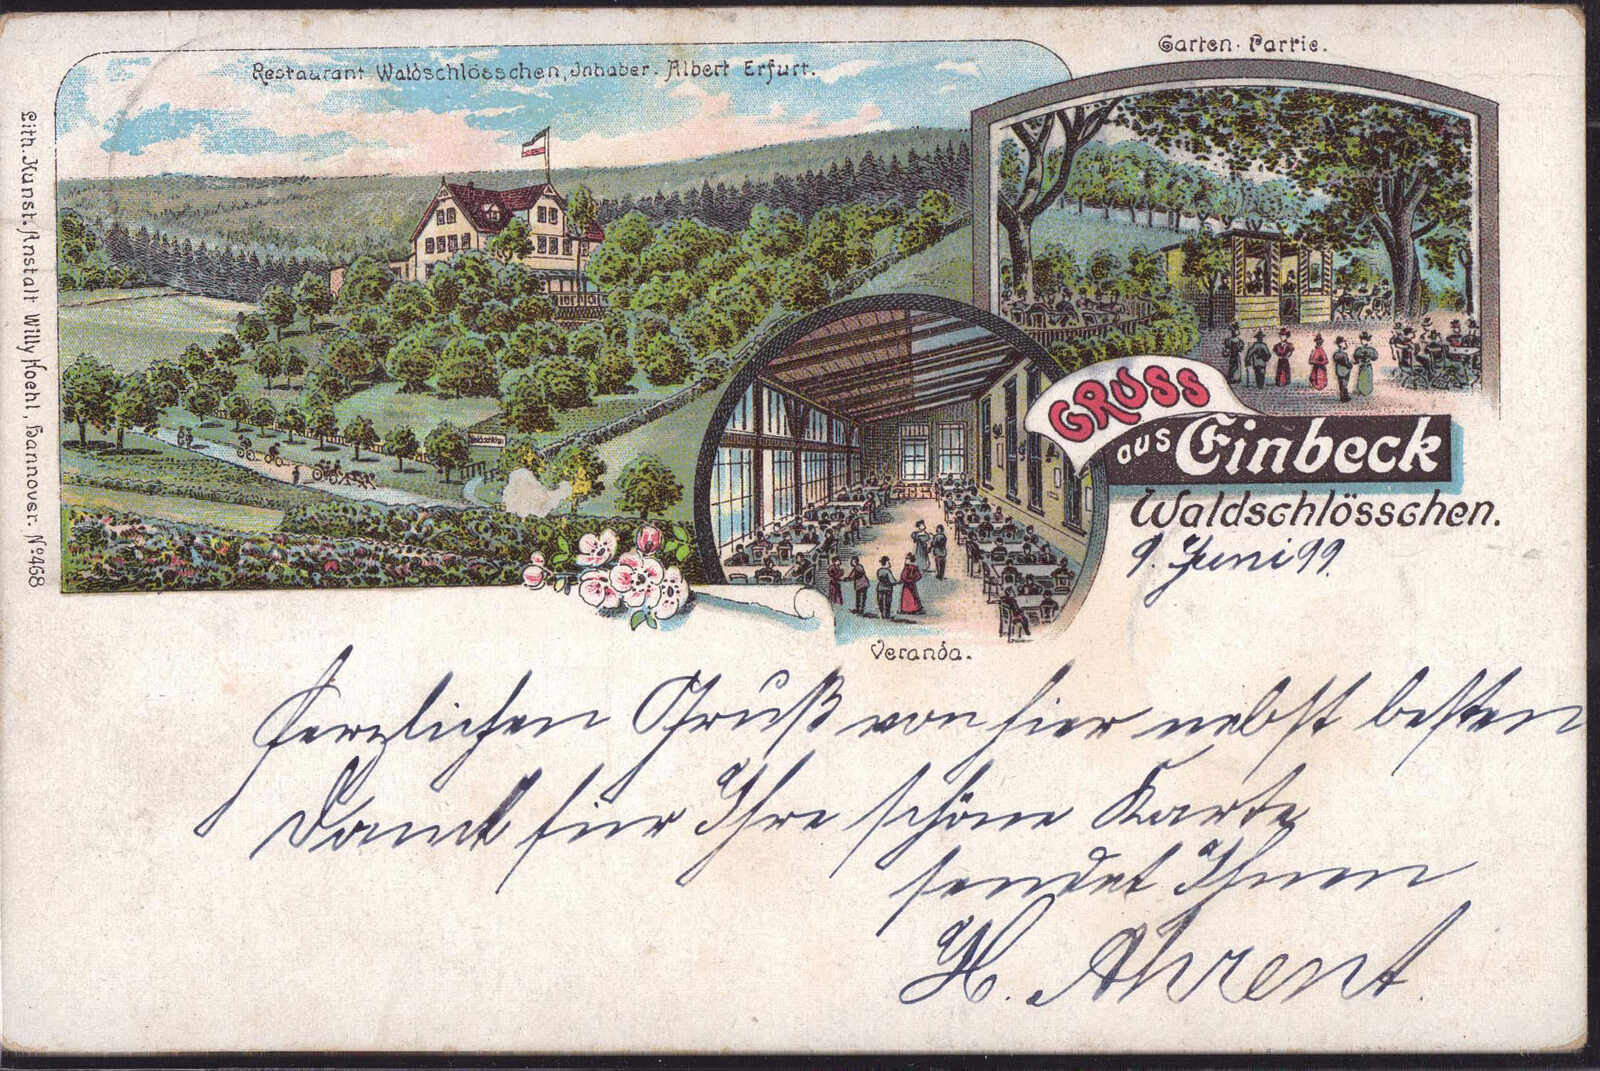 Restaurant Waldschlösschen, Inhaber. Albert Erfurt.
Garten-Partie.
Lith. Kunst. Anstalt Willy Hoehl, Hannover. No 468
Waldschlöss
GRUSS
aus Einbeck
Waldschlösschen.
9. Juni 99.
Veranda.
Herzlichen Gruß von hier nebst besten
Dank für Ihre schöne Karte
sendet Ihnen
H. Ahrent.